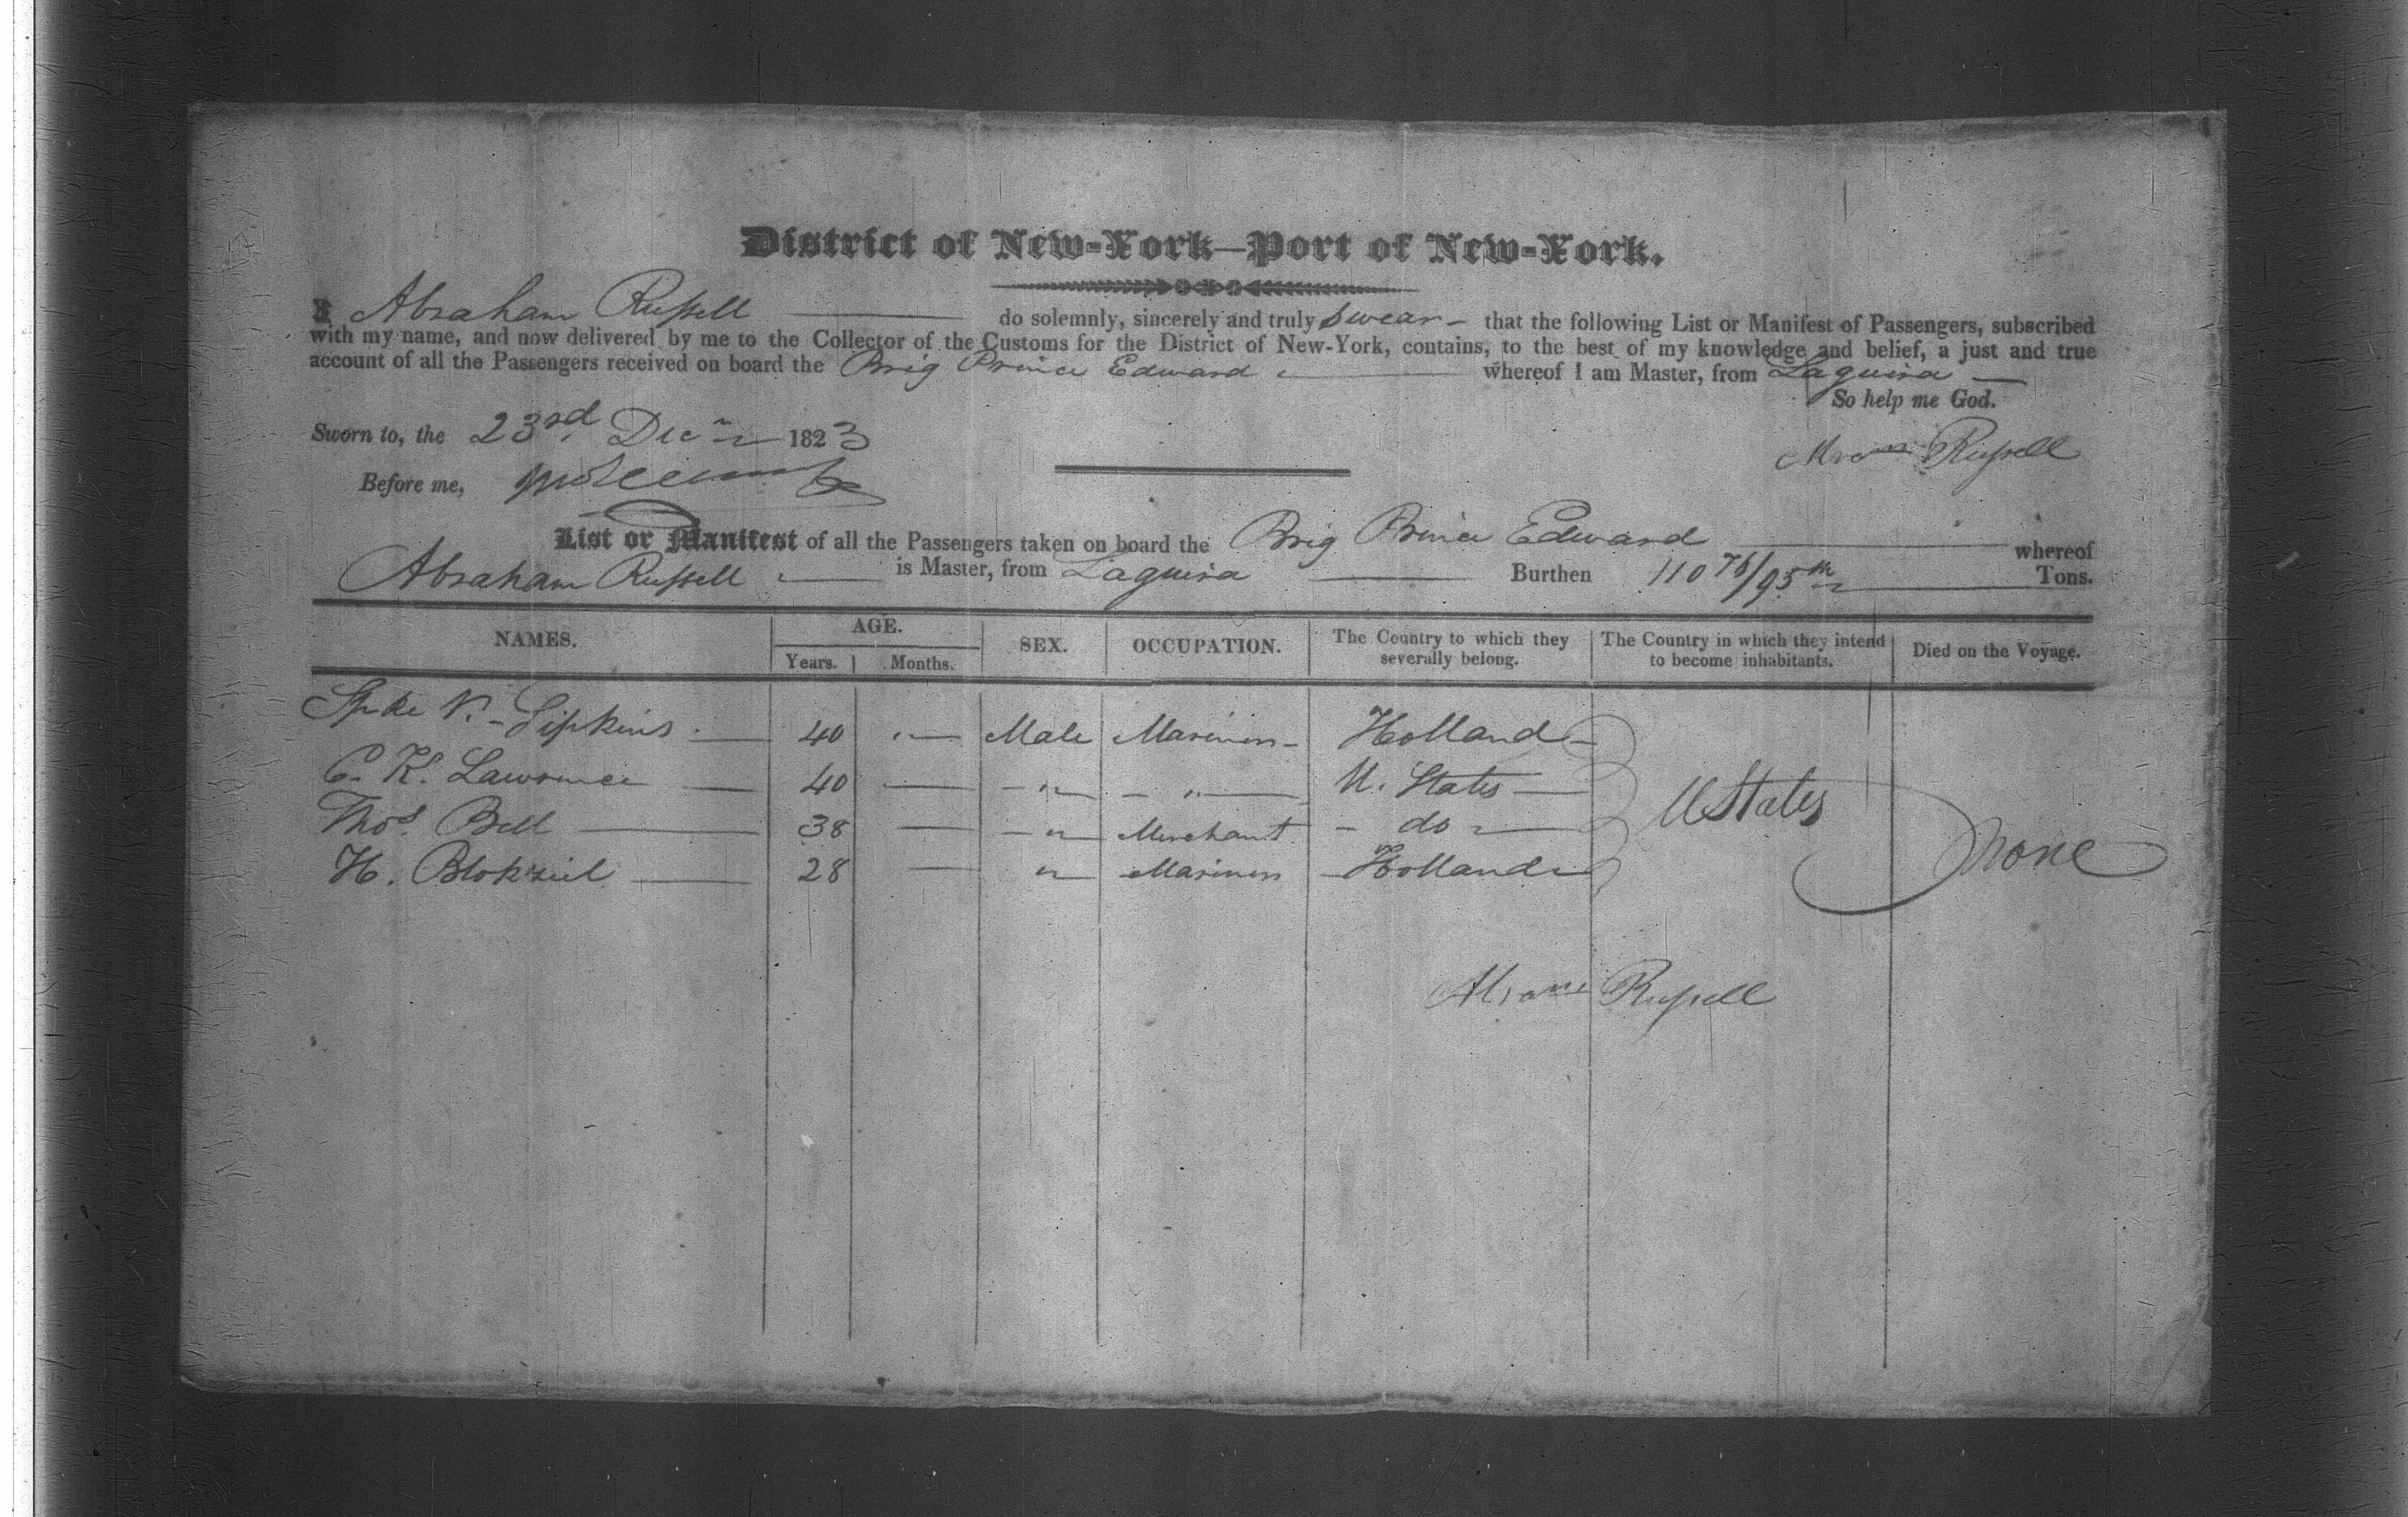 District of New-York—Port of New-York.
I Abraham Russell do solemnly, sincerely and truly swear – that the following List or Manifest of Passengers, subscribed
with my name, and now delivered by me to the Collector of the Customs for the District of New-York, contains, to the best of my knowledge and belief, a just and true
account of all the Passengers received on board the Brig Prince Edward whereof I am Master, from Laguira
So help me God.
Sworn to, the 23rd Decr 1823
Abram Russell
Before me,
List or Manifest of all the Passengers taken on board the Brig Prince Edward whereof
Abraham Russell is Master, from Laguira Burthen 110 76/95th Tons.
NAMES. AGE. SEX. OCCUPATION. The Country to which they severally belong. The Country in which they intend to become inhabitants. Died on the Voyage.
Years. Months.
40 " Male Mariner Holland
C. K. Lawrence 40 " " U. States
Thos. Bell 38 " Merchant do
H. Blokziel 28 " Mariner Holland
U States
None
Abram Russell